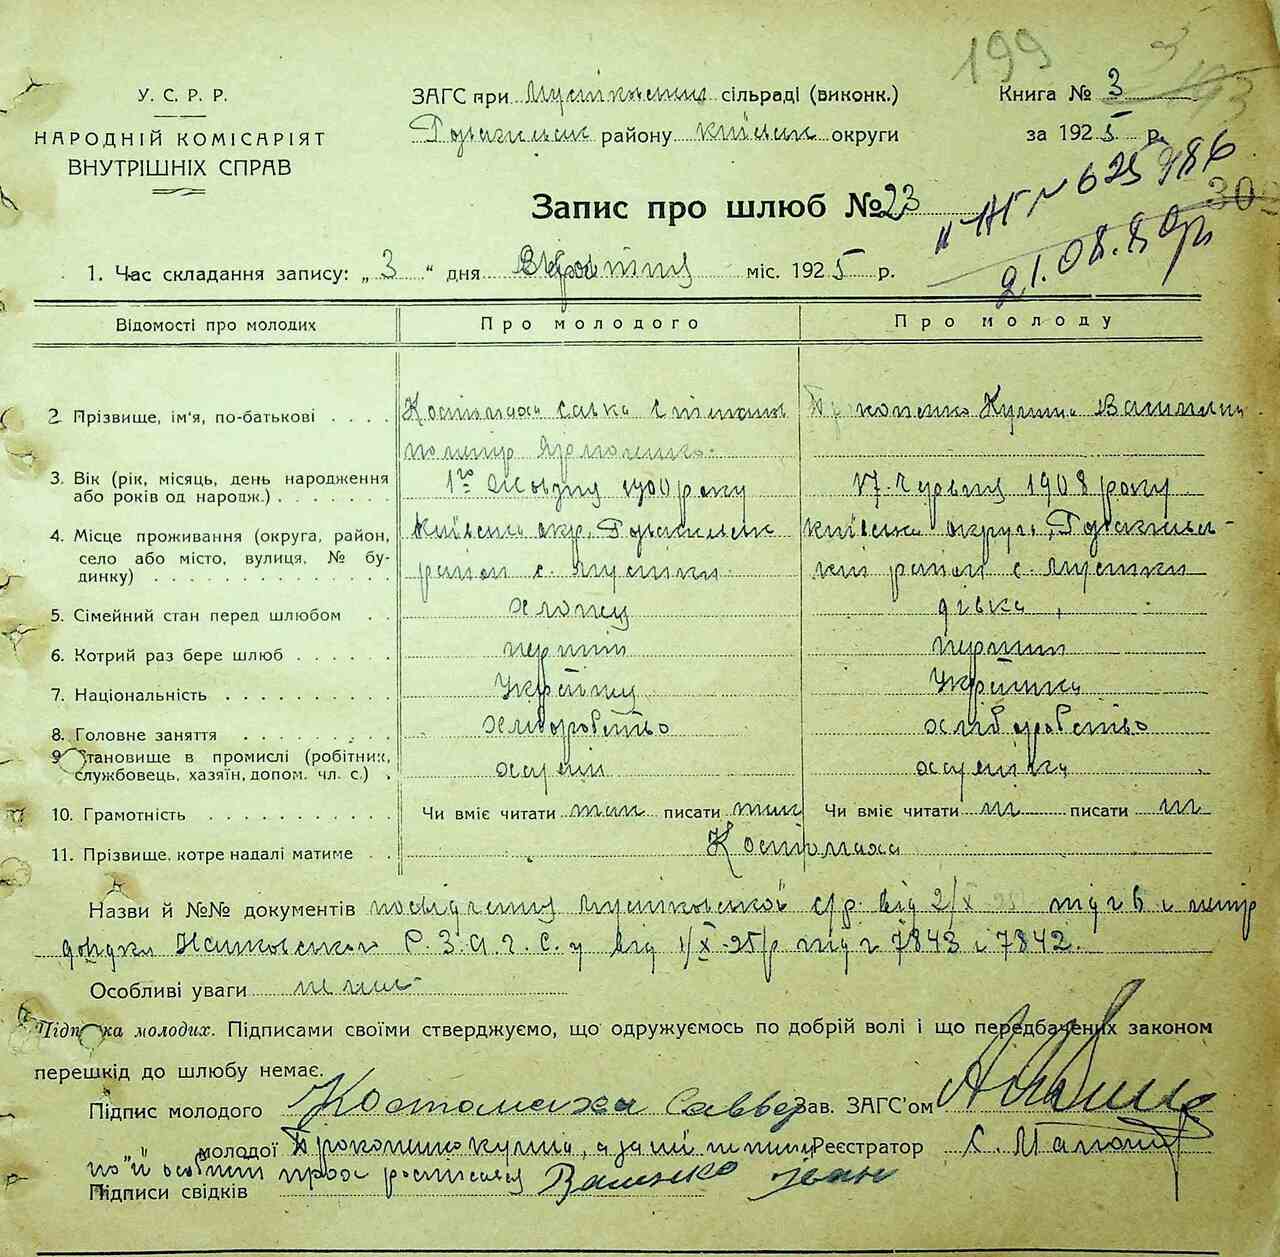 199
У. С. Р. Р.
НАРОДНІЙ КОМІСАРІЯТ
ВНУТРІШНІХ СПРАВ
ЗАГС при сільраді (виконк.)
району округи
Книга № 3
за 1925 р.
"ІІІ" № 625486
21.08.89р
Запис про шлюб № 23
1. Час складання запису: „ 3 “ дня міс. 1925 р.
Відомості про молодих
Про молодого
Про молоду
2 Прізвище, ім'я, по-батькові
Костомаха Савка
Прокопенко Василівна
3. Вік (рік, місяць, день народження
або років од народж.)
1го Жовтня 1900 року
17. Червня 1908 року
4. Місце проживання (округа, район,
село або місто, вулиця, № бу-
динку)
Київська окр.
район с. Мусійки
Київська округа,
район с. Мусійки
5. Сімейний стан перед шлюбом
хлопец
дівка
6. Котрий раз бере шлюб
перший
перший
7. Національність
Українец
Українка
8. Головне заняття
хліборобство
хліборобство
9 Становище в промислі (робітник,
службовець, хазяїн, допом. чл. с.)
10. Грамотність
Чи вміє читати так писати так
Чи вміє читати ні писати ні
11. Прізвище, котре надалі матиме
Костомаха
Назви й №№ документів посвідчення Мусійковської с/р. від 2/X 25 під ч 6 і
Р.З.А.Г.С.у від 1/X-25 р під ч 7843 і 7842.
Особливі уваги немає
Підписка молодих. Підписами своїми стверджуємо, що одружуємось по добрій волі і що передбачених законом
перешкід до шлюбу немає.
Підпис молодого Костомаха Зав. ЗАГС'ом
молодої Прокопенко а за неї Реєстратор
прозі росписався Іван
Підписи свідків